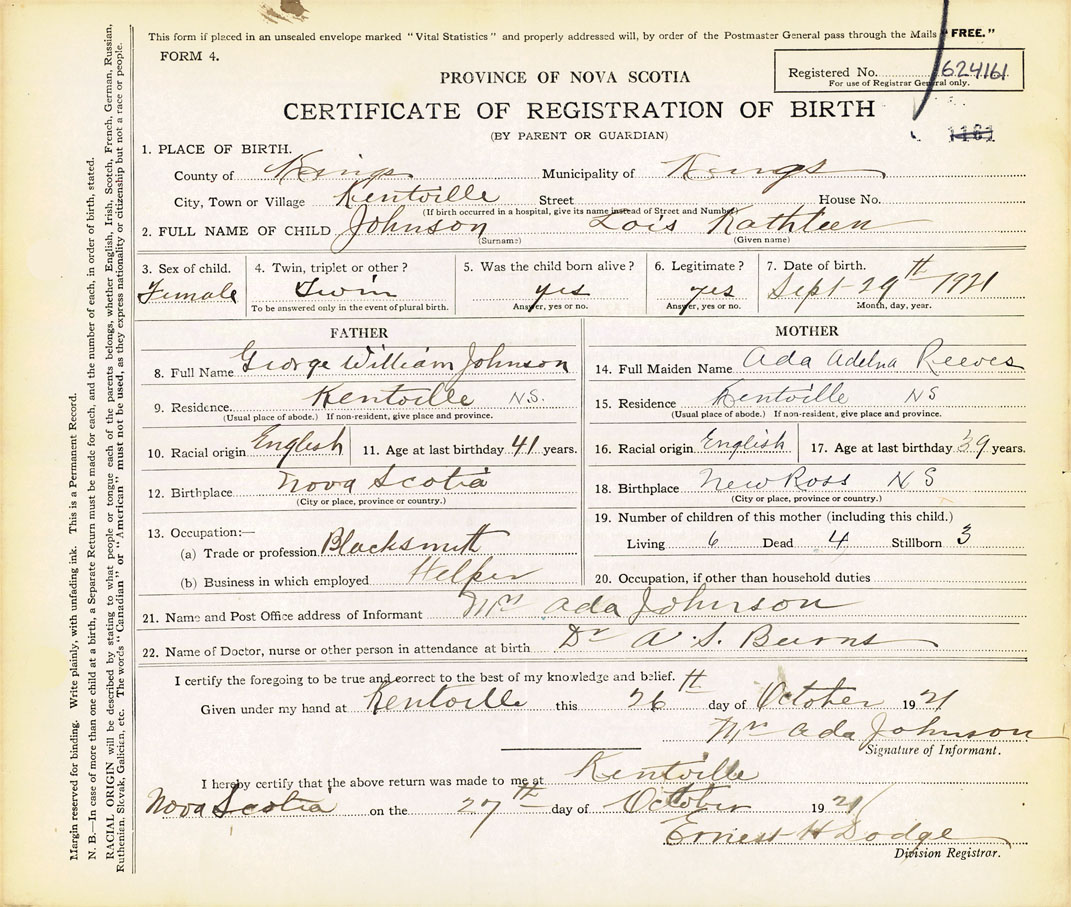 This form if placed in an unsealed envelope marked "Vital Statistics" and properly addressed will, by order of the Postmaster General pass through the Mails "FREE."
FORM 4.
Registered No. 624161
For use of Registrar General only.
PROVINCE OF NOVA SCOTIA
CERTIFICATE OF REGISTRATION OF BIRTH
1161
(BY PARENT OR GUARDIAN)
1. PLACE OF BIRTH.
County of Kings Municipality of Kings
City, Town or Village Kentville Street House No.
(If birth occurred in a hospital, give its name instead of Street and Number)
2. FULL NAME OF CHILD Johnson Lois Kathleen
(Surname) (Given name)
3. Sex of child. 4. Twin, triplet or other? 5. Was the child born alive? 6. Legitimate? 7. Date of birth.
Female Twin yes yes Sept 29th 1921
To be answered only in the event of plural birth. Answer, yes or no. Answer, yes or no. Month, day, year.
FATHER
8. Full Name George William Johnson
9. Residence. Kentville NS.
(Usual place of abode.) If non-resident, give place and province.
10. Racial origin English 11. Age at last birthday 41 years.
12. Birthplace Nova Scotia
(City or place, province or country.)
13. Occupation:—
(a) Trade or profession Blacksmith
(b) Business in which employed Helper
MOTHER
14. Full Maiden Name Ada Adelna Reeves
15. Residence Kentville NS
(Usual place of abode.) If non-resident, give place and province.
16. Racial origin English 17. Age at last birthday 39 years.
18. Birthplace New Ross N S
(City or place, province or country.)
19. Number of children of this mother (including this child.)
Living 6 Dead 4 Stillborn 3
20. Occupation, if other than household duties
21. Name and Post Office address of Informant Mrs Ada Johnson
22. Name of Doctor, nurse or other person in attendance at birth Dr W. S. Burns
I certify the foregoing to be true and correct to the best of my knowledge and belief.
Given under my hand at Kentville this 26th day of October 1921
Mrs Ada Johnson
Signature of Informant.
I hereby certify that the above return was made to me at Kentville
Nova Scotia on the 27th day of October 1921
Ernest H Dodge
Division Registrar.
Margin reserved for binding. Write plainly, with unfading ink. This is a Permanent Record.
N. B.—In case of more than one child at a birth, a Separate Return must be made for each, and the number of each, in order of birth, stated.
RACIAL ORIGIN will be described by stating to what people or tongue each of the parents belongs, whether English, Irish, Scotch, French, German, Russian,
Ruthenian, Slovak, Galicien, etc. The words "Canadian" or "American" must not be used, as they express nationality or citizenship but not a race or people.